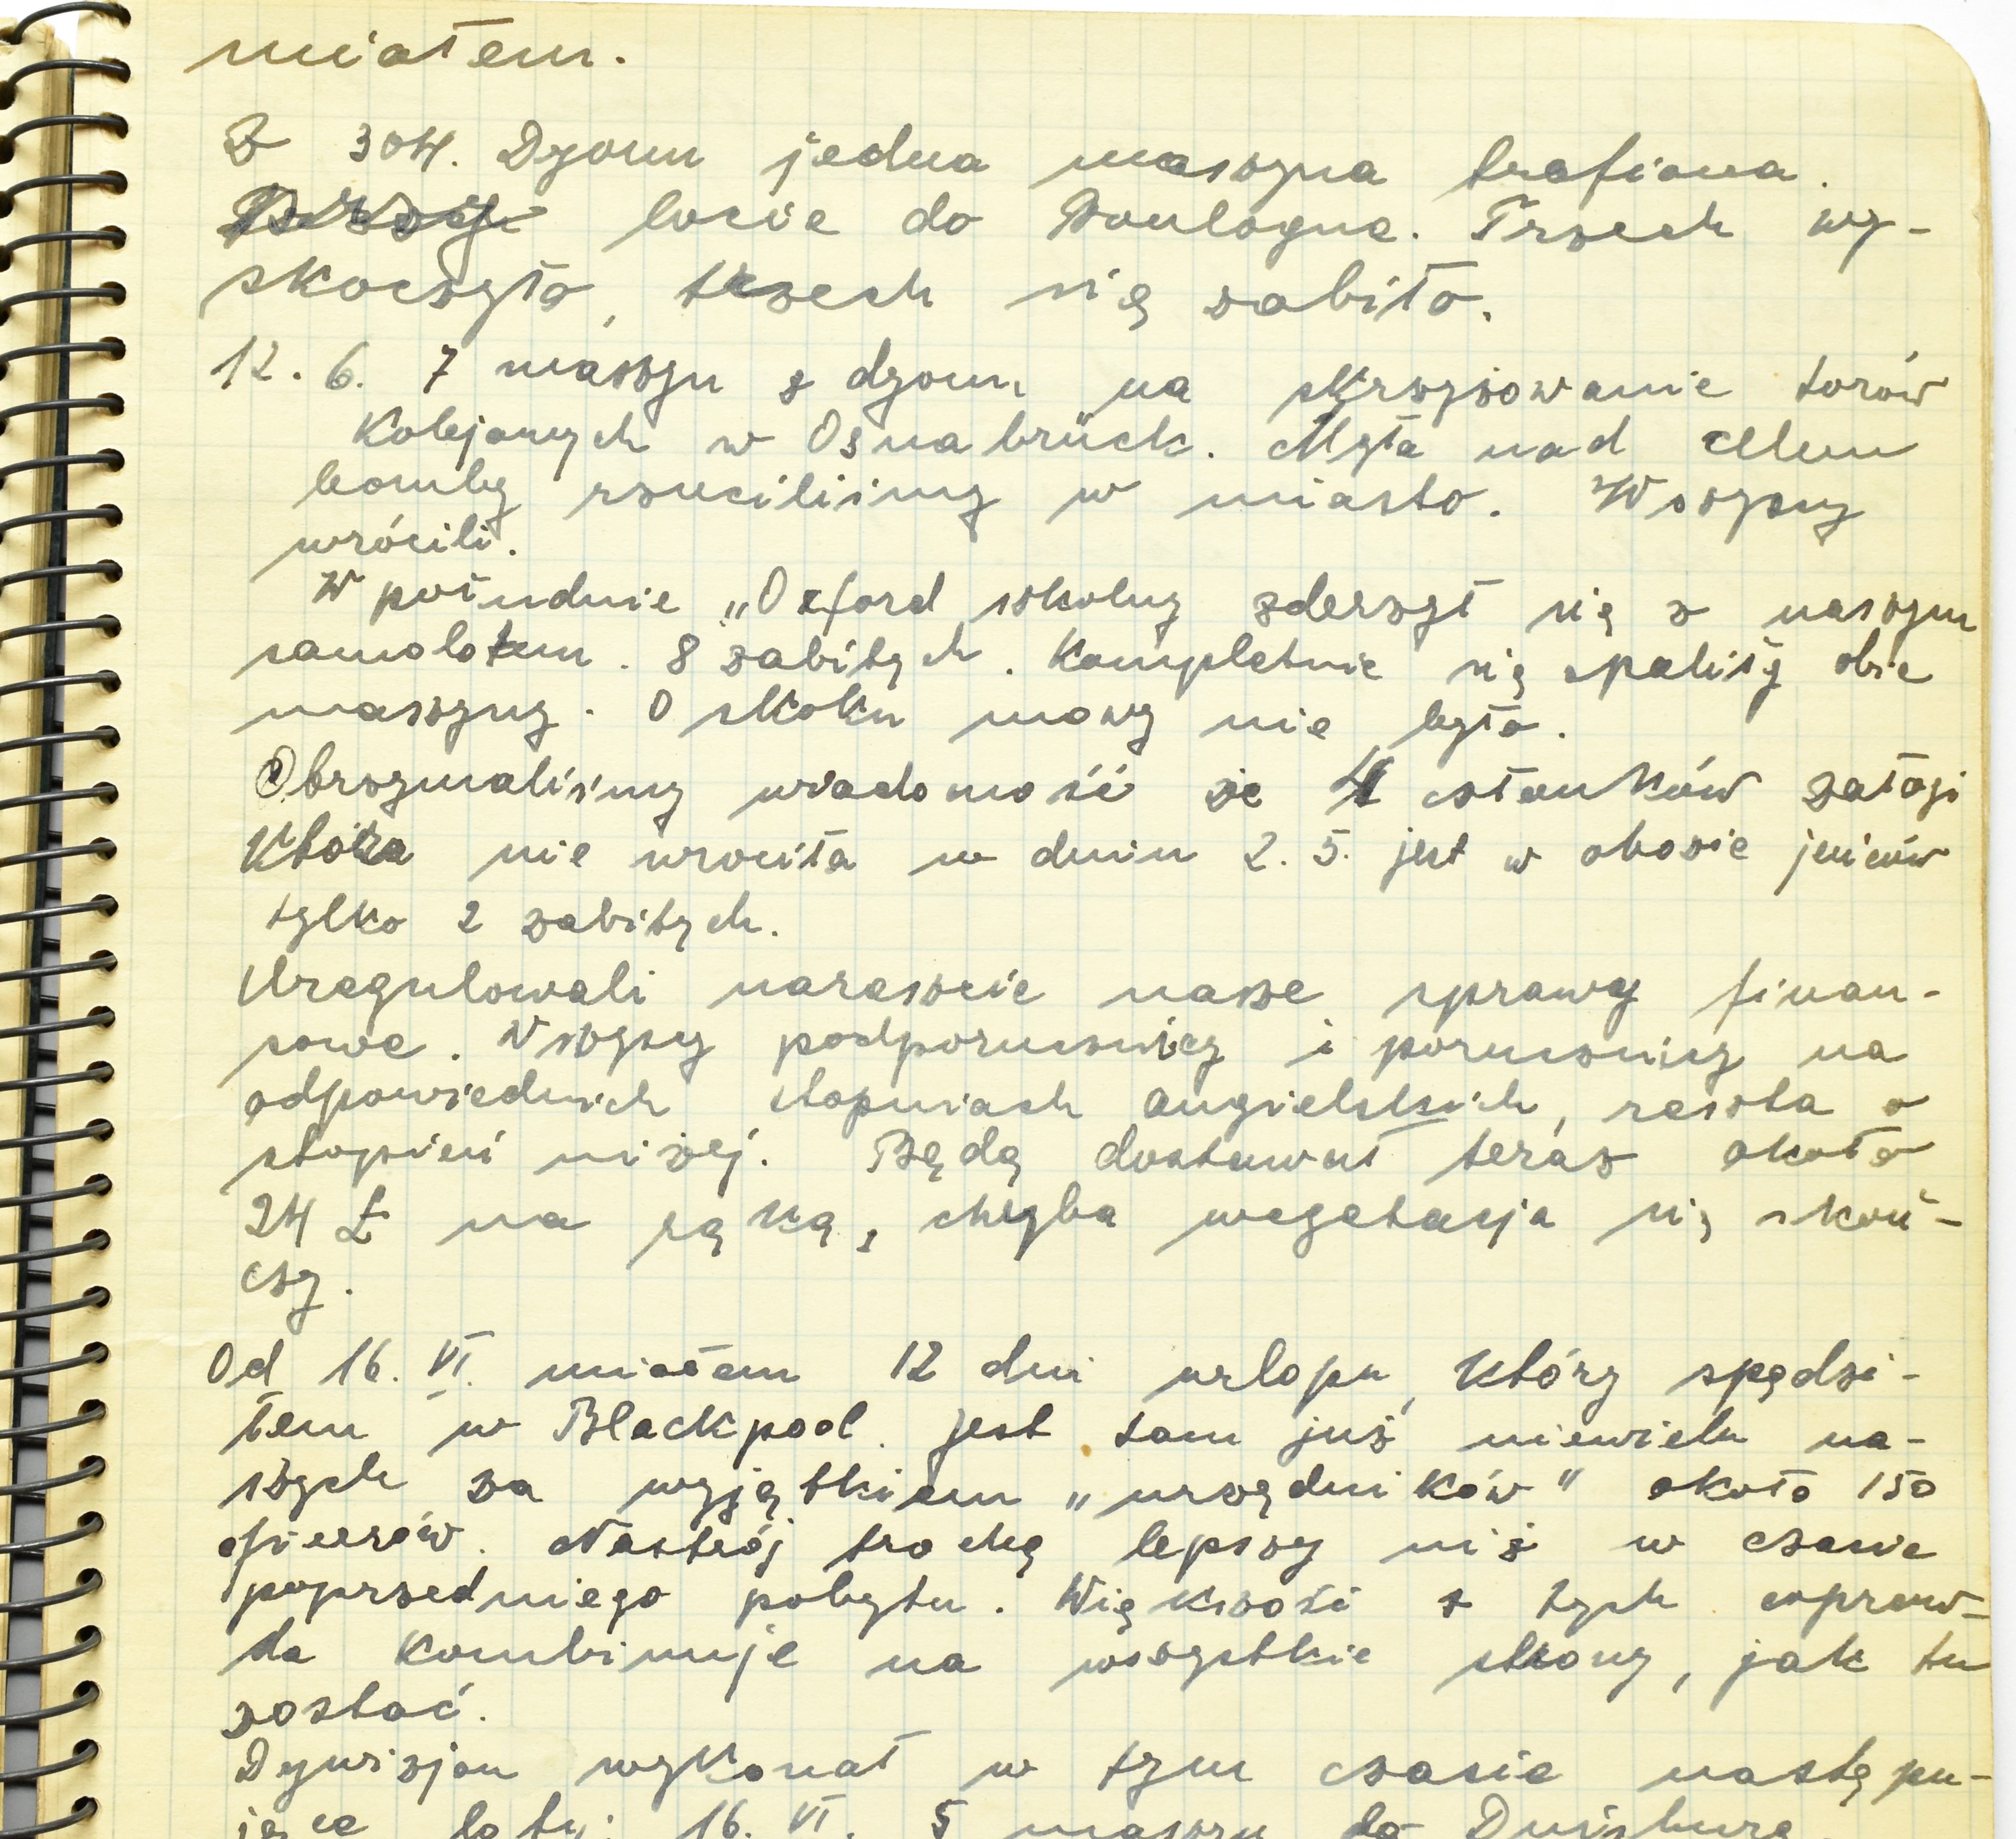 miałem.
Z 304. Dyonu jedna maszyna trafiona.
Przy locie do Boulogne. Trzech wy-
skoczyło, trzech się zabiło.
12. 6. 7 maszyn z dyonu na skrzyżowanie torów
kolejowych w Osnabrück. Mgła nad celem
bomby rzuciliśmy w miasto. Wszyscy
wrócili.
W południe „Oxford szkolny zderzył się z naszym
samolotem. 8 zabitych. Kompletnie się spaliły obie
maszyny. O skoku mowy nie było.
Otrzymaliśmy wiadomość że 4 członków załogi
która nie wróciła w dniu 2. 5. jest w obozie jeńców
tylko 2 zabitych.
Uregulowali nareszcie nasze sprawy finan-
sowe. Wszyscy podporucznicy i porucznicy na
odpowiednich stopniach angielskich, reszta o
stopień niżej. Będę dostawał teraz około
24 £ na rękę, chyba wegetacja się skoń-
czy.
Od 16. VI. miałem 12 dni urlopu, który spędzi-
łem w Blackpool. Jest tam już niewielu na-
szych za wyjątkiem „urzędników" około 150
oficerów. Nastrój trochę lepszy niż w czasie
poprzedniego pobytu. Większość z tych copraw-
da kombinuje na wszystkie strony, jak tu
zostać.
Dywizjon wykonał w tym czasie następu-
jące loty: 16. VI. 5 maszyn do Duisburg